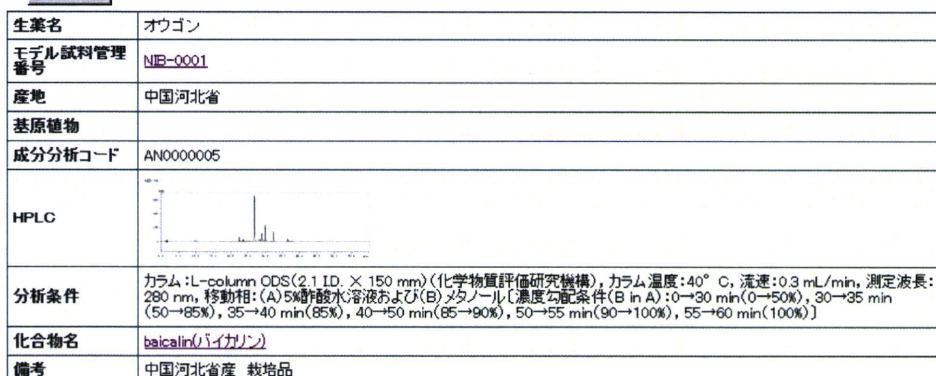 生薬名 オウゴン
モデル試料管理番号 NIB-0001
産地 中国河北省
基原植物
成分分析コード AN0000005
HPLC
分析条件 カラム:L-column ODS(2.1 I.D. × 150 mm)(化学物質評価研究機構), カラム温度:40° C, 流速:0.3 mL/min, 測定波長:
280 nm, 移動相:(A)5%酢酸水溶液および(B)メタノール[濃度勾配条件(B in A):0→30 min(0→50%), 30→35 min
(50→85%), 35→40 min(85%), 40→50 min(85→90%), 50→55 min(90→100%), 55→60 min(100%)]
化合物名 baicalin(バイカリン)
備考 中国河北省産 栽培品